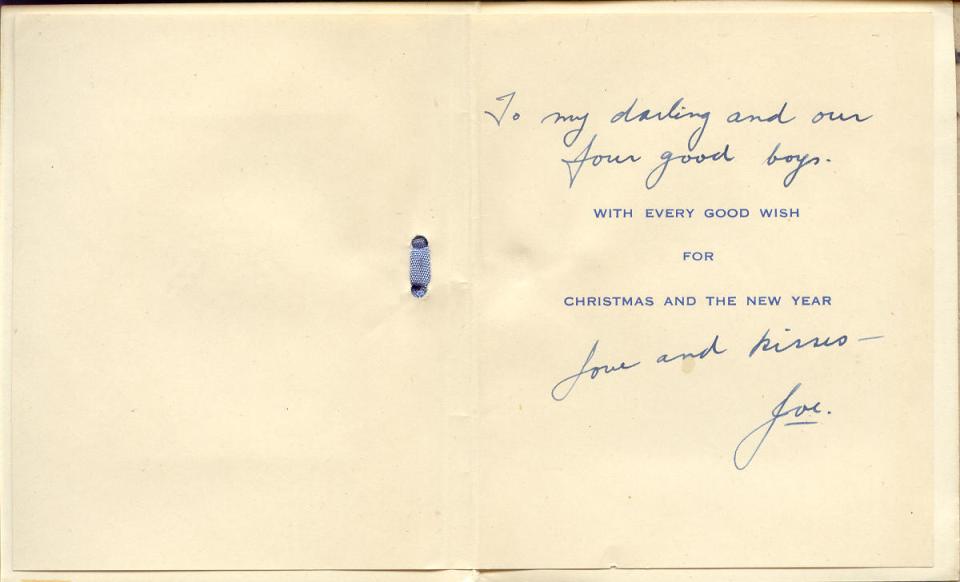 To my darling and our
four good boys.
WITH EVERY GOOD WISH
FOR
CHRISTMAS AND THE NEW YEAR
Love and kisses —
Joe.